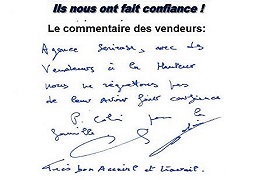 Ils nous ont fait confiance !
Le commentaire des vendeurs:
Agence Sérieuse, avec des
Vendeurs à la Hauteur
nous ne regrettons pas
de leur avoir fait confiance
P. pour la
famille
Très bon Accueil et travail.